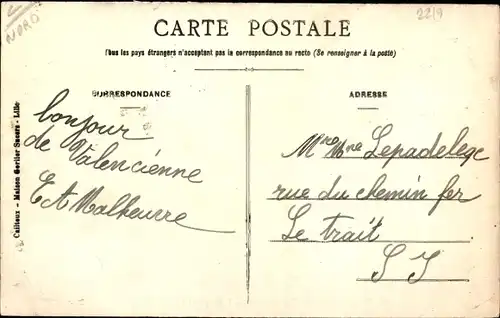 NORD
22/9
CARTE POSTALE
Tous les pays étrangers n'acceptent pas la correspondance au recto (Se renseigner à la poste)
CORRESPONDANCE
ADRESSE
Cailteux - Maison Gorlier Succrs - Lille
bonjour
de Valencienne
E A Malheurre
Mme Lepadelege
rue du chemin fer
Le trait
S I